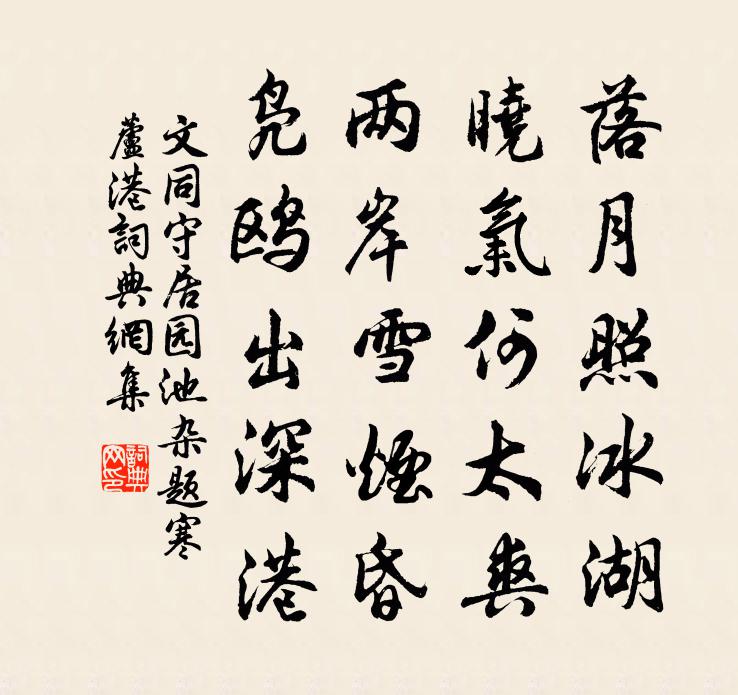 落月照冰湖
曉氣何太爽
两岸雪煙昏
鳬鸥出深港
文同守居园池杂题寒
蘆港詞典網集
詞典网印